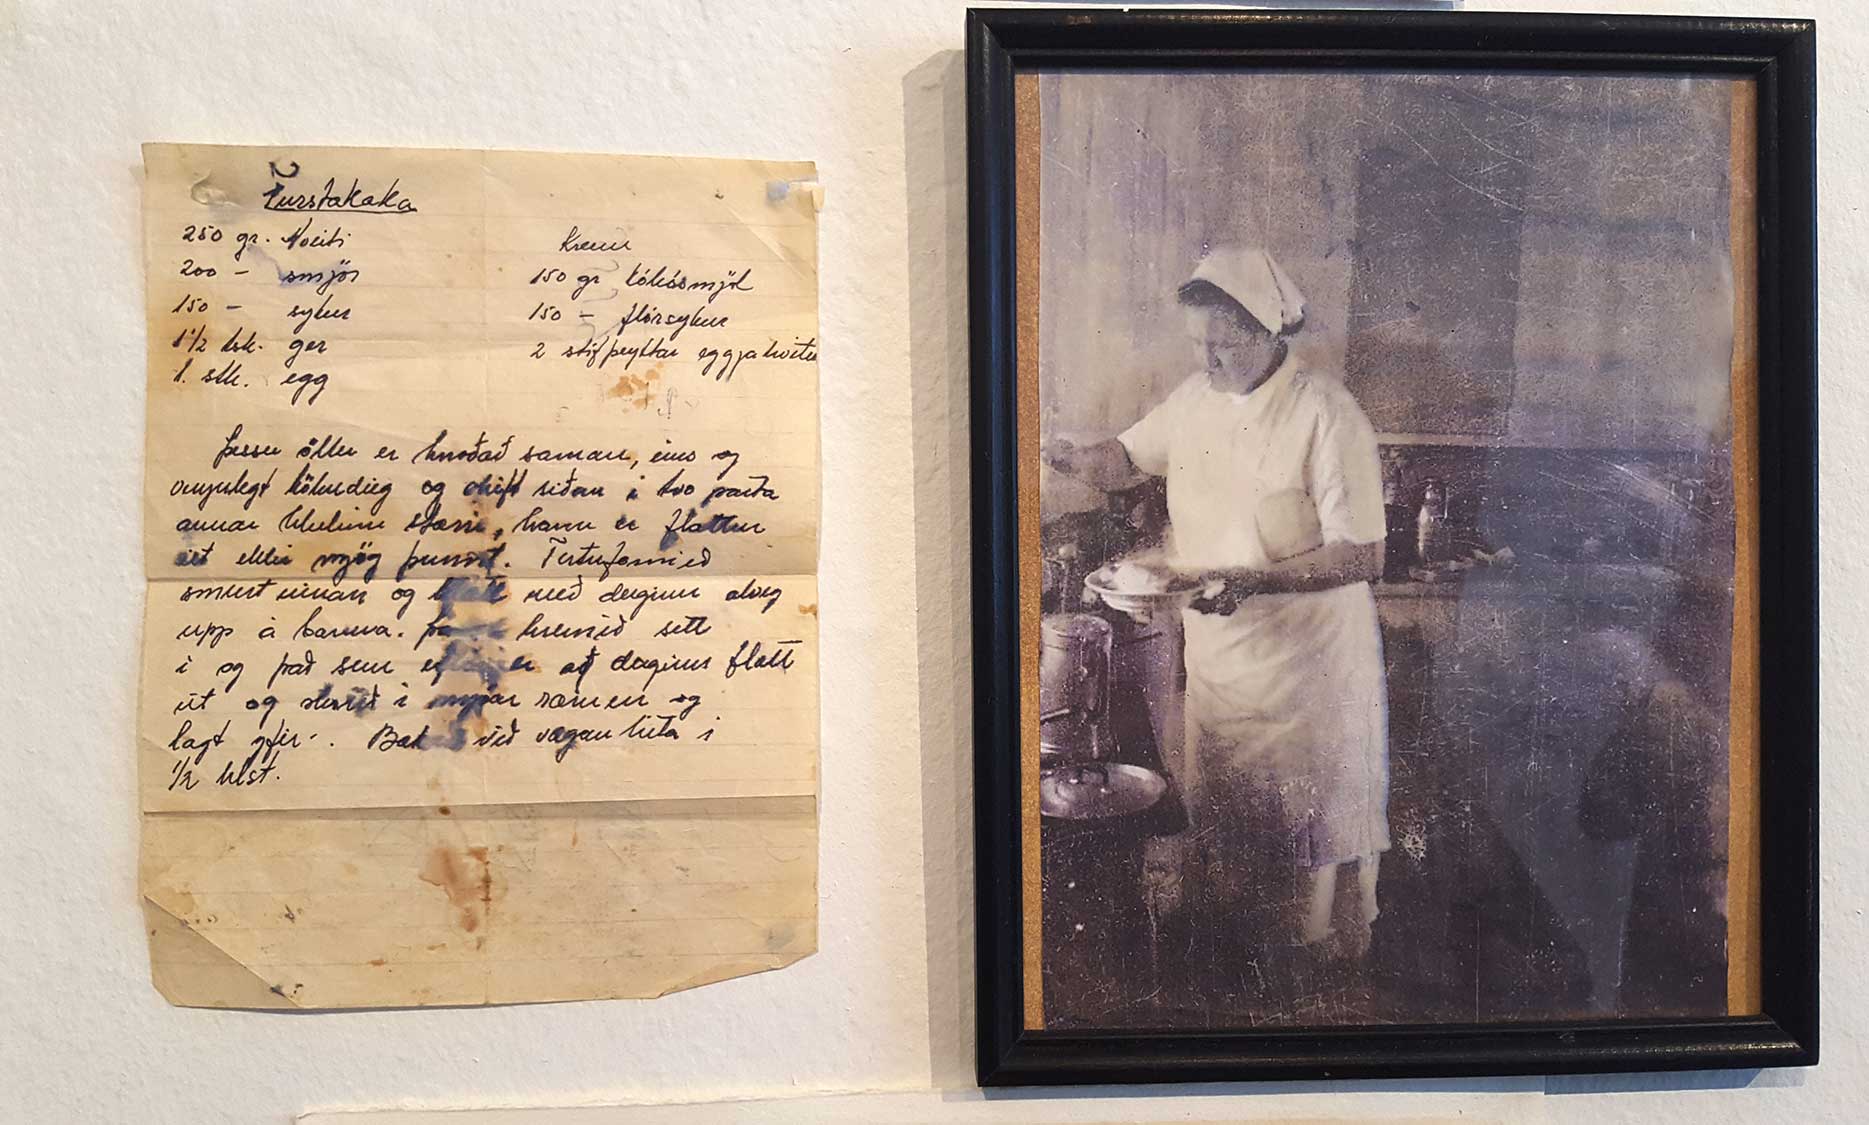 2
Furstakaka
250 gr. Hveiti
200 - smjör
150 - sykur
1 1/2 tsk. ger
1. stk. egg
Krem
150 gr kókósmjöl
150 - flórsykur
2 stífþeyttar eggjahvítu
Þessu öllu er hnoðað saman, eins og
venjulegt kökudeig og skift síðan í tvo parta
annar hlutinn stærri, hann er flattur
út ekki mjög þunnt. Tertuformið
smurt innan og með deginu alveg
upp á barma. kremið sett
í og það sem er af deginu flatt
út og skorið í mjóar ræmur og
lagt yfir. Bakað við vægan hita í
1/2 klst.